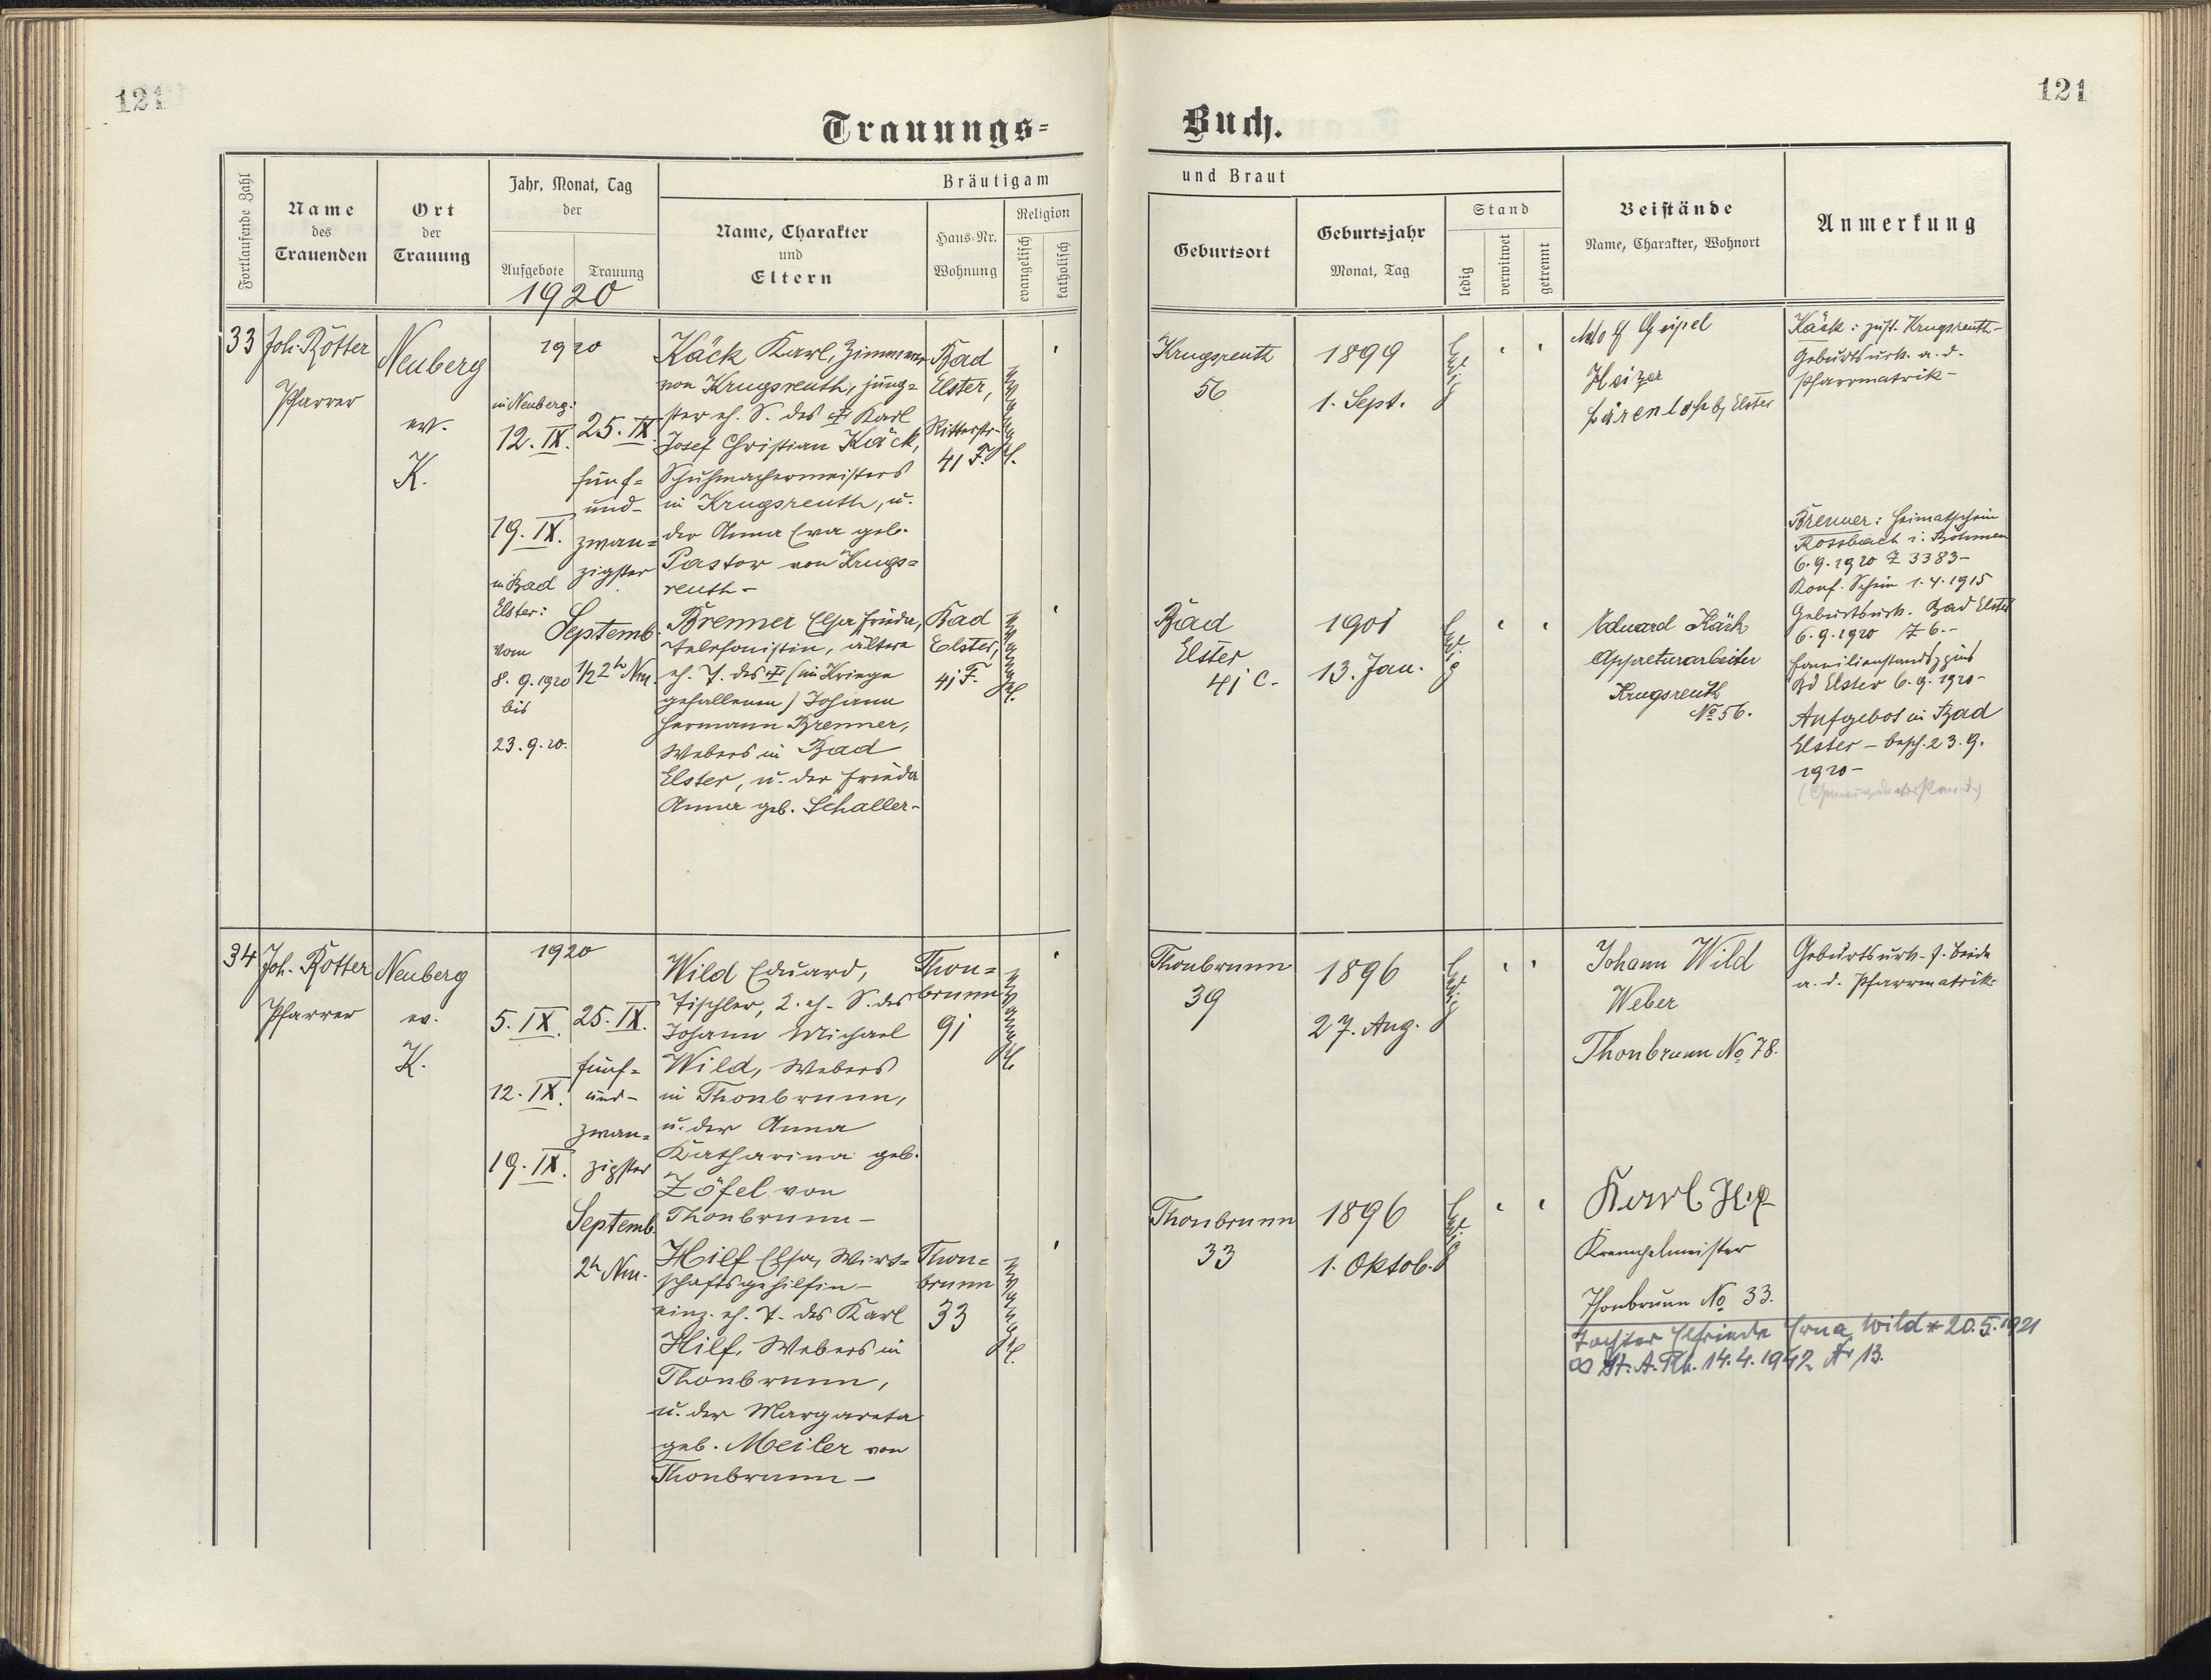 121
121
Trauungs-
Buch.
Fortlaufende Zahl
Name
des
Trauenden
Ort
der
Trauung
Jahr, Monat, Tag
der
Aufgebote
Trauung
1920
Bräutigam
Name, Charakter
und
Eltern
Haus-Nr.
Wohnung
Religion
evangelisch
katholisch
und Braut
Geburtsort
Geburtsjahr
Monat, Tag
Stand
ledig
verwitwet
getrennt
Beistände
Name, Charakter, Wohnort
Anmerkung
33
Joh. Rotter
Pfarrer
Neuberg
ev.
K.
1920
in Neuberg:
12. IX.
19. IX.
in Bad
Elster:
vom
8. 9. 1920
bis
23. 9. 20.
25. IX.
fünf-
und-
zwan-
zigster
Septemb.
1/2 2 h Nm.
Käck Karl, Zimmerer
von Krugsreuth, jüng-
ster eh. S. des Karl
Josef Christian Käck,
Schuhmachermeisters
in Krugsreuth, u.
der Anna Eva geb.
Pastor von Krugs-
reuth -
Bad
Elster,
Ritterstr.
41 F.
evangel.
Krugsreuth
56
1899
1. Sept.
ledig
Adolf Geipel
Heizer
Bärenloh b/ Elster
Käck: zust. Krugsreuth -
Geburtsurk. a. d.
Pfarrmatrik -
Brenner Elsa Frieda,
Telefonistin, ältere
eh. T. des (im Kriege
gefallenen) Johann
Hermann Brenner,
Webers in Bad
Elster, u. der Frieda
Anna geb. Schaller -
Bad
Elster,
41 F.
evangel.
Bad
Elster
41 c.
1901
13. Jan.
ledig
Eduard Käck
Appreturarbeiter
Krugsreuth
No 56.
Brenner: Heimatschein
Rossbach i. Böhmen
6. 9. 1920 Z 3383 -
Konf. Schein 1. 4. 1915
Geburtsurk. Bad Elster
6. 9. 1920
Bd Elster 6. 9. 1920 -
Aufgebot in Bad
Elster - besch. 23. 9.
1920 -
34
Joh. Rotter
Pfarrer
Neuberg
ev.
K.
1920
5. IX.
12. IX.
19. IX.
25. IX.
fünf-
und-
zwan-
zigster
Septemb.
2 h Nm.
Wild Eduard,
Tischler, 2. eh. S. des
Johann Michael
Wild, Webers
in Thonbrunn,
u. der Anna
Katharina geb.
Zöfel von
Thonbrunn -
Thon-
brunn
91
evangel.
Thonbrunn
39
1896
27. Aug.
ledig
Johann Wild
Weber
Thonbrunn No 78.
Geburtsurk. f. beide
a. d. Pfarrmatrik.
Hilf Elsa, Wirt-
schaftsgehilfin -
einz. eh. T. des Karl
Hilf, Webers in
Thonbrunn,
u. der Margareta
geb. Meiler von
Thonbrunn -
Thon-
brunn
33
evangel.
Thonbrunn
33
1896
1. Oktob.
ledig
Karl Hilf
Krempelmeister
Thonbrunn No 33.
Tochter Elfriede Erna Wild * 20.5.1921
∞ St. A. Th. 14. 4. 1942 Nr 13.